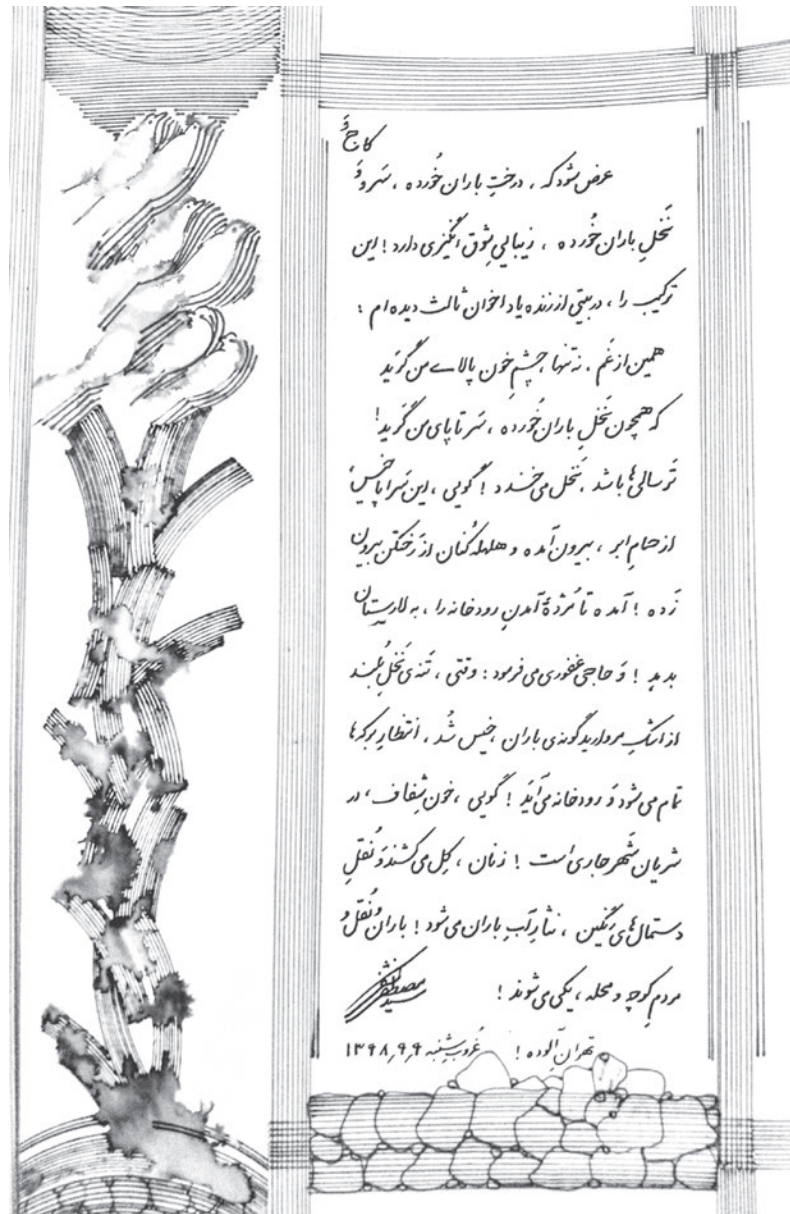 کاج وَ
عرض شود که ، درختِ باران خُورده ، سَرو وَ
نَخلِ باران خُورده ، زیباییِ شوق انگیزی دارد ! این
ترکیب را ، در بیتی از زنده یاد اخوان ثالث دیده ام :
همین از غَم ، نه تنها ، چشمِ خون پالاے من گرید
که همچون نَخلِ باران خُورده ، سَر تا پای من گرید !
تَرسالی ها باشد ، نَخل می خندد ! گویی ، این سَراپا خیس ،
از حمامِ ابر ، بیرون آمده و هلهله کُنان از رَختکن بیرون
زَده ! آمده تا مُژدهٔ آمدنِ رودخانه را ، به لارستان
بدهد ! وَ حاجی غفوری می فرمود : وقتی ، تَنه ی نَخلِ بُلند
از اشکِ مروارید گونه ی باران ، خیس شُد ، انتظارِ برکه ها
تمام می شود وَ رودخانه می آید ! گویی ، خون شفاف ، در
شریان شَهر جاری است ! زنان ، کِل می کشند وَ نُقلِ
دستمال های رَنگین ، نثارِ آبِ باران می شود ! باران وُ نُقل وُ
مردمِ کوچه و محله ، یکی می شوند !
تهران آلوده ! غُروب شنبه ۱۳۹۸٫۹٫۹